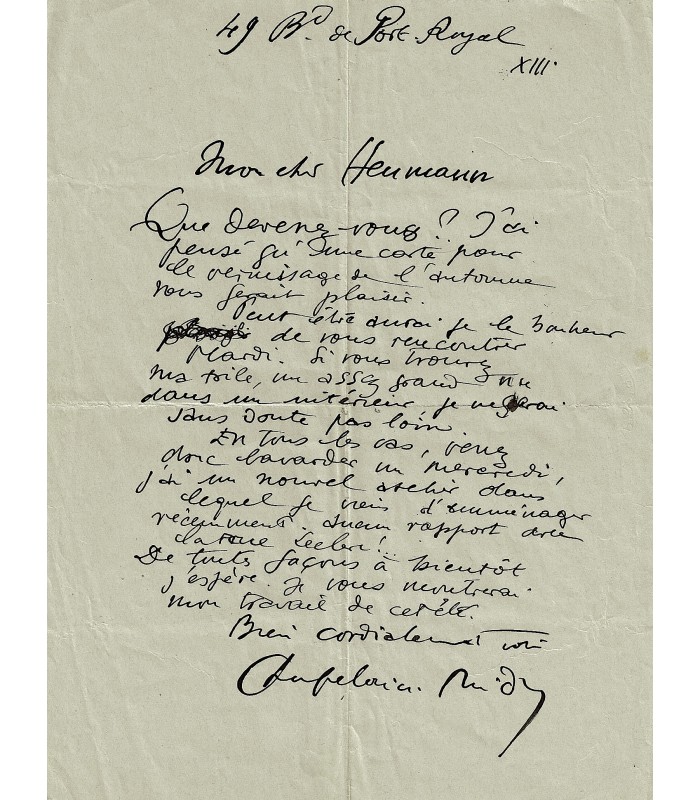 49 Bd. de Port-Royal
XIII.
Mon cher Heumann
Que devenez-vous? J'ai
pensé qu'une carte pour
le vernissage de l'automne
vous ferait plaisir.
Peut être aurai je le bonheur
de vous rencontrer
Mardi. Si vous trouvez
ma toile, un assez grand nu
dans un intérieur je ne serai
sans doute pas loin.
En tous les cas, venez
donc bavarder un mercredi,
j'ai un nouvel atelier dans
lequel je viens d'emménager
récemment. aucun rapport avec
la rue Leclerc!..
De toutes façons à bientôt
j'espère. Je vous montrerai
mon travail de cet été.
Bien cordialement
Chapelain-Midy